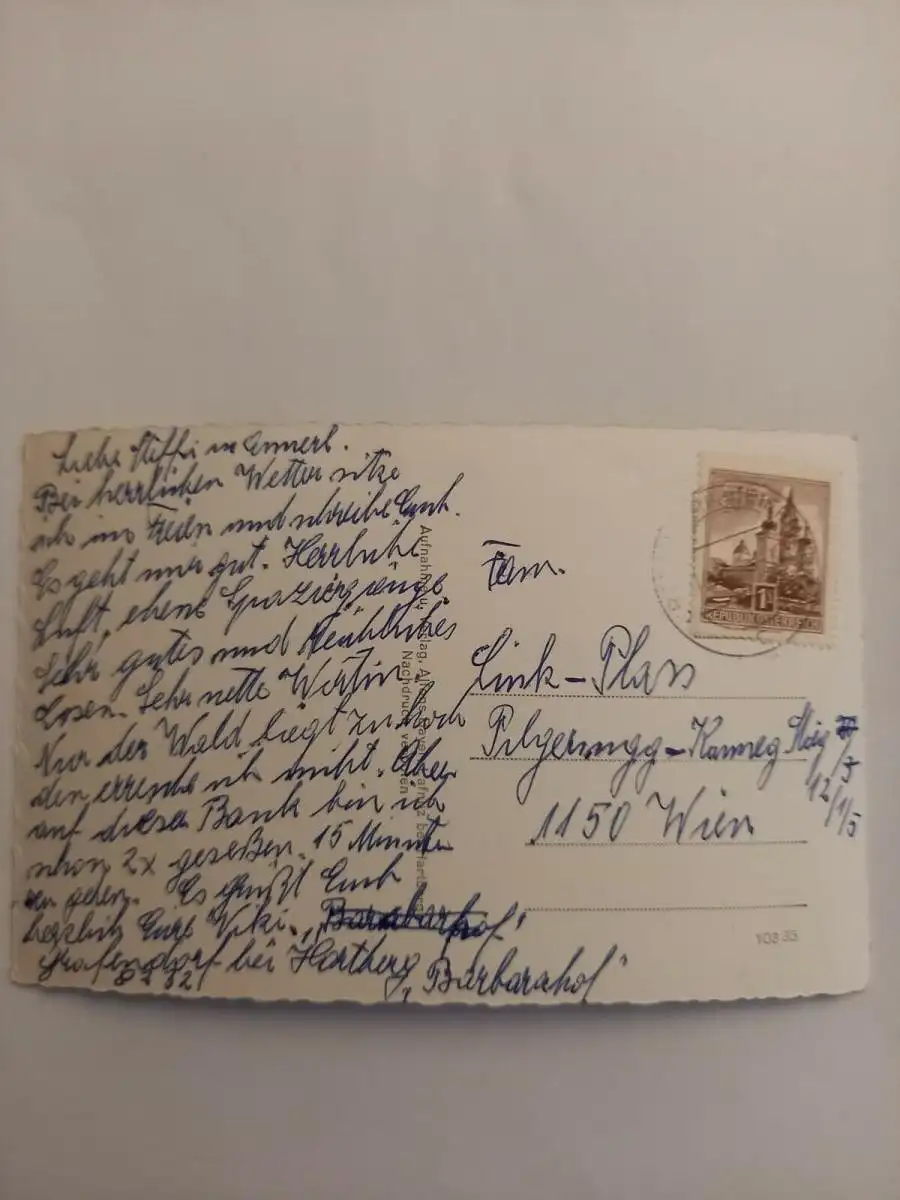 Liebe Steffi u Annerl.
Bei herrlichen Wetter sitze
ich im Freien und schreibe Euch.
Es geht mir gut. Herrliche
Luft, ebene Spaziergänge.
Sehr gutes und reichliches
Essen. Sehr nette Wirtin
Nur der Wald liegt zu hoch
den erreiche ich nicht. Aber
auf dieser Bank bin ich
schon 2x geseßen. 15 Minuten
zu gehen. Es grüßt Euch
herzlich Eure Viki. „Barabarhof"
Grafendorf bei Hartberg „Barbarahof"
Aufnahme u. Verlag
Nachdruck verboten
REPUBLIK ÖSTERREICH
1
Fam.
Link-Plan
12/1/5
1150 Wien
108 35